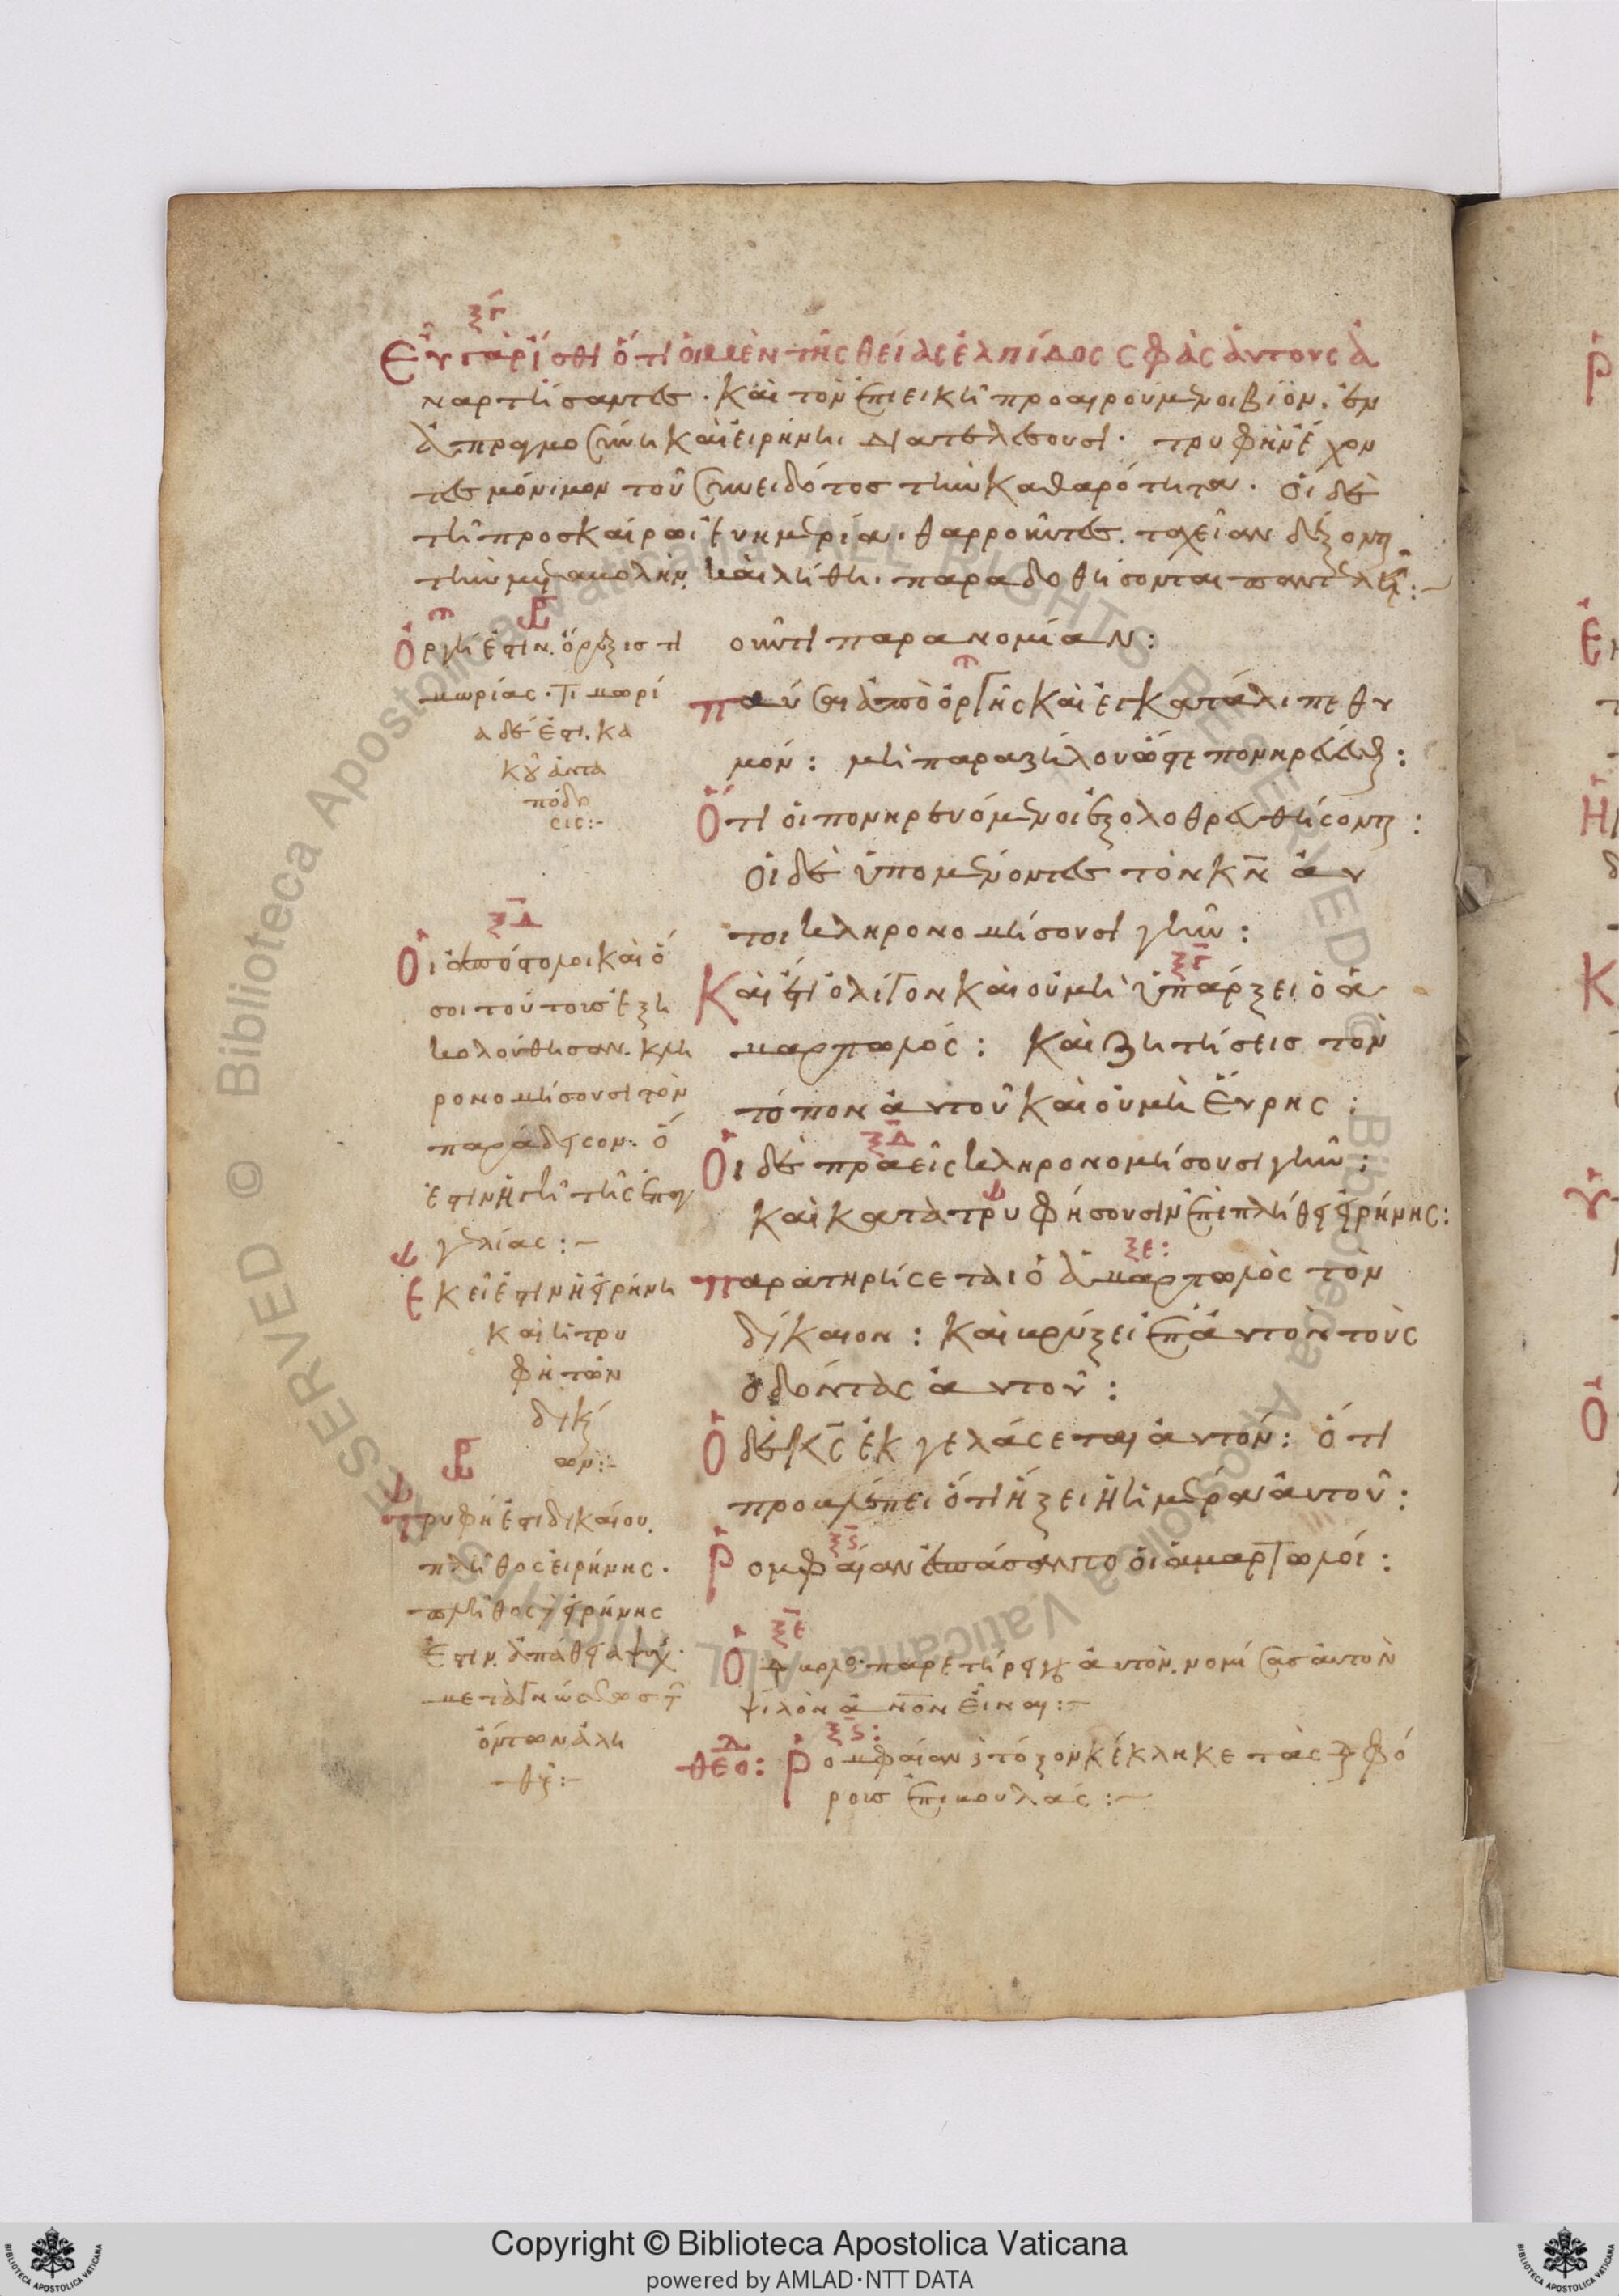 ξγ
Εὖ γὰρ ἴσθι ὅτι οἱ μὲν τῆς θείας ἐλπίδος σφὰς αὐτοὺς ἀ
ναρτήσαντες. καὶ τὸν ἐπιεικῆ προαιρούμενοι βίον. ἐν
ἀπραγμοσύνη καὶ εἰρήνηι διατελέσουσι. τρυφὴν ἔχον
τες μόνιμον τοῦ συνειδότος τὴν καθαρότητα. οἱ δὲ
τῆ προσκαίρωι εὐημερία. θαρροῦντες. ταχεῖαν δέξονται
τὴν μεταβολὴν. καὶ λήθη. παραδοθήσονται παντελεῖ:
Ὀργή ἐστιν. ὄρεξις τι
μωρίας. Τιμωρί
α δέ ἐστι. κα
κοῦ ἀντα
πόδο
σις:-
ξδ
Οἱ ἀπόστολοι καὶ ὅ
σοι τούτοις ἐξη
κολούθησαν. κλη
ρονομήσουσι τὸν
παράδεισον. ὅ
ἐστιν ἡ γῆ τῆς ἐπαγ
γελίας:-
Ἐκεῖ ἐστιν ἡ εἰρήνη
καὶ ἡ τρυ
φὴ τῶν
δικαί
ων:-
Τρυφὴ ἐστι δικαίου.
πλῆθος εἰρήνης.
πλῆθος δὲ εἰρήνης
ἐστιν. ἀπάθεια ψυχῆς.
μετὰ γνώσεως τῶν
ὄντων ἀλη
θοῦς:-
οῦντι παρανομίαν:
Παῦσαι ἀπὸ ὀργῆς καὶ ἐγκατάλιπε θυ
μόν: μὴ παραζήλου ὥστε πονηρεύεσθαι:
Ὅτι οἱ πονηρευόμενοι ἐξολοθρευθήσονται:
Οἱ δὲ ὑπομένοντες τὸν κν αὐ
τοὶ κληρονομήσουσι γῆν:
ξγ
Καὶ ἔτι ὀλίγον καὶ οὐ μὴ ὑπάρξει ὁ ἁ
μαρτωλός: Καὶ ζητήσεις τὸν
τόπον αὐτοῦ καὶ οὐ μὴ εὕρης:
ξδ
Οἱ δὲ πραεῖς κληρονομήσουσι γῆν:
Καὶ κατατρυφήσουσιν ἐπὶ πλήθει εἰρήνης:
ξε:
Παρατηρήσεται ὁ ἁμαρτωλὸς τὸν
δίκαιον: Καὶ βρύξει ἐπ' αὐτὸν τοὺς
ὀδόντας αὐτοῦ:
Ὁ δὲ κς ἐκγελάσεται αὐτόν: ὅτι
προβλέπει ὅτι ἥξει ἡ ἡμέρα αὐτοῦ:
ξς
Ῥομφαίαν ἐσπάσαντο οἱ ἁμαρτωλοί:
ξε
Ὁ διάβολος παρετήρει τὸν αὐτὸν. νομίσας αὐτὸν
ψιλὸν ἄνον εἶναι:-
ξς:
θεο: Ῥομφαίαν καὶ τόξον κέκληκε τὰς διαφό
ρους ἐπιβουλάς:-
Copyright © Biblioteca Apostolica Vaticana
powered by AMLAD·NTT DATA